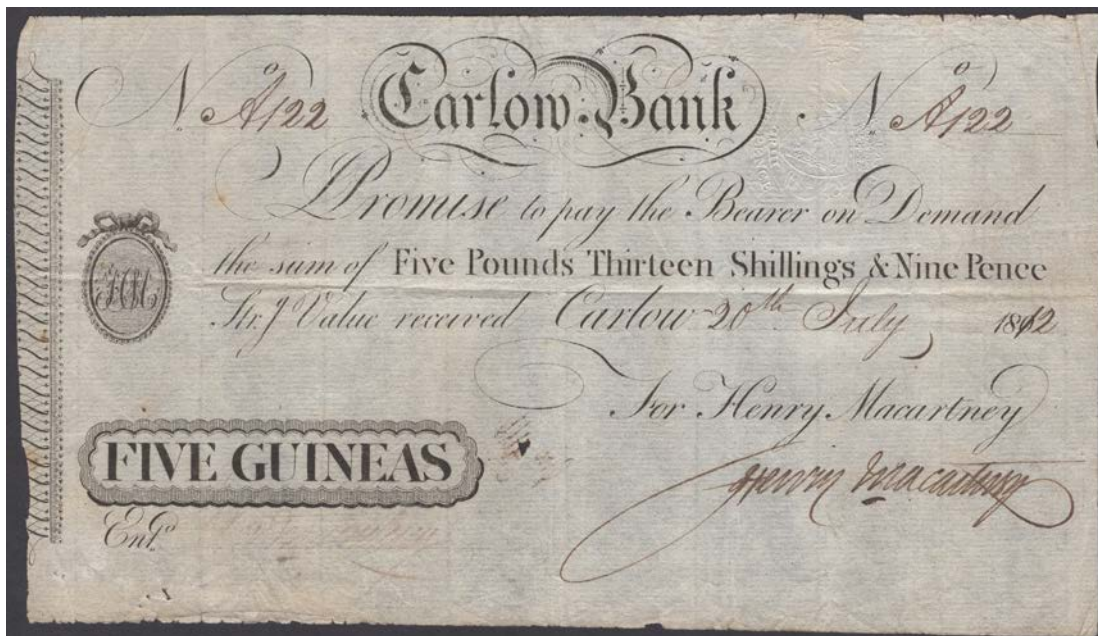 No. A122 Carlow Bank No. A122
I Promise to pay the Bearer on Demand
the sum of Five Pounds Thirteen Shillings & Nine Pence
HM
Str.g Value received Carlow 20th July 1812
For Henry Macartney
FIVE GUINEAS
Henry Macartney
Entd.